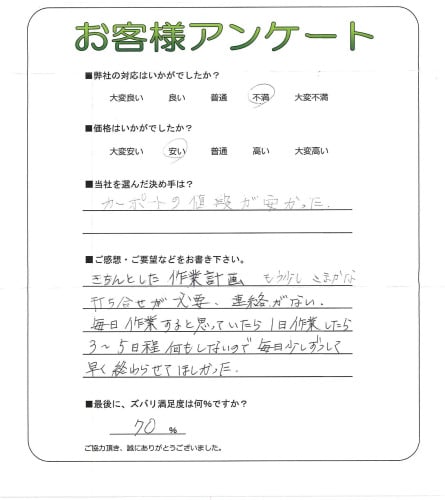 お客様アンケート
■弊社の対応はいかがでしたか？
大変良い 良い 普通 不満 大変不満
■価格はいかがでしたか？
大変安い 安い 普通 高い 大変高い
■当社を選んだ決め手は？
カーポートの値段が安かった.
■ご感想・ご要望などをお書き下さい。
きちんとした 作業計画 もう少し こまかな
打ち合せが 必要、連絡がない.
毎日 作業すると思っていたら 1日作業したら
3～5日程 何もしないので 毎日少しずつして
早く終わらせてほしかった.
■最後に、ズバリ満足度は何％ですか？
70 ％
ご協力頂き、誠にありがとうございました。